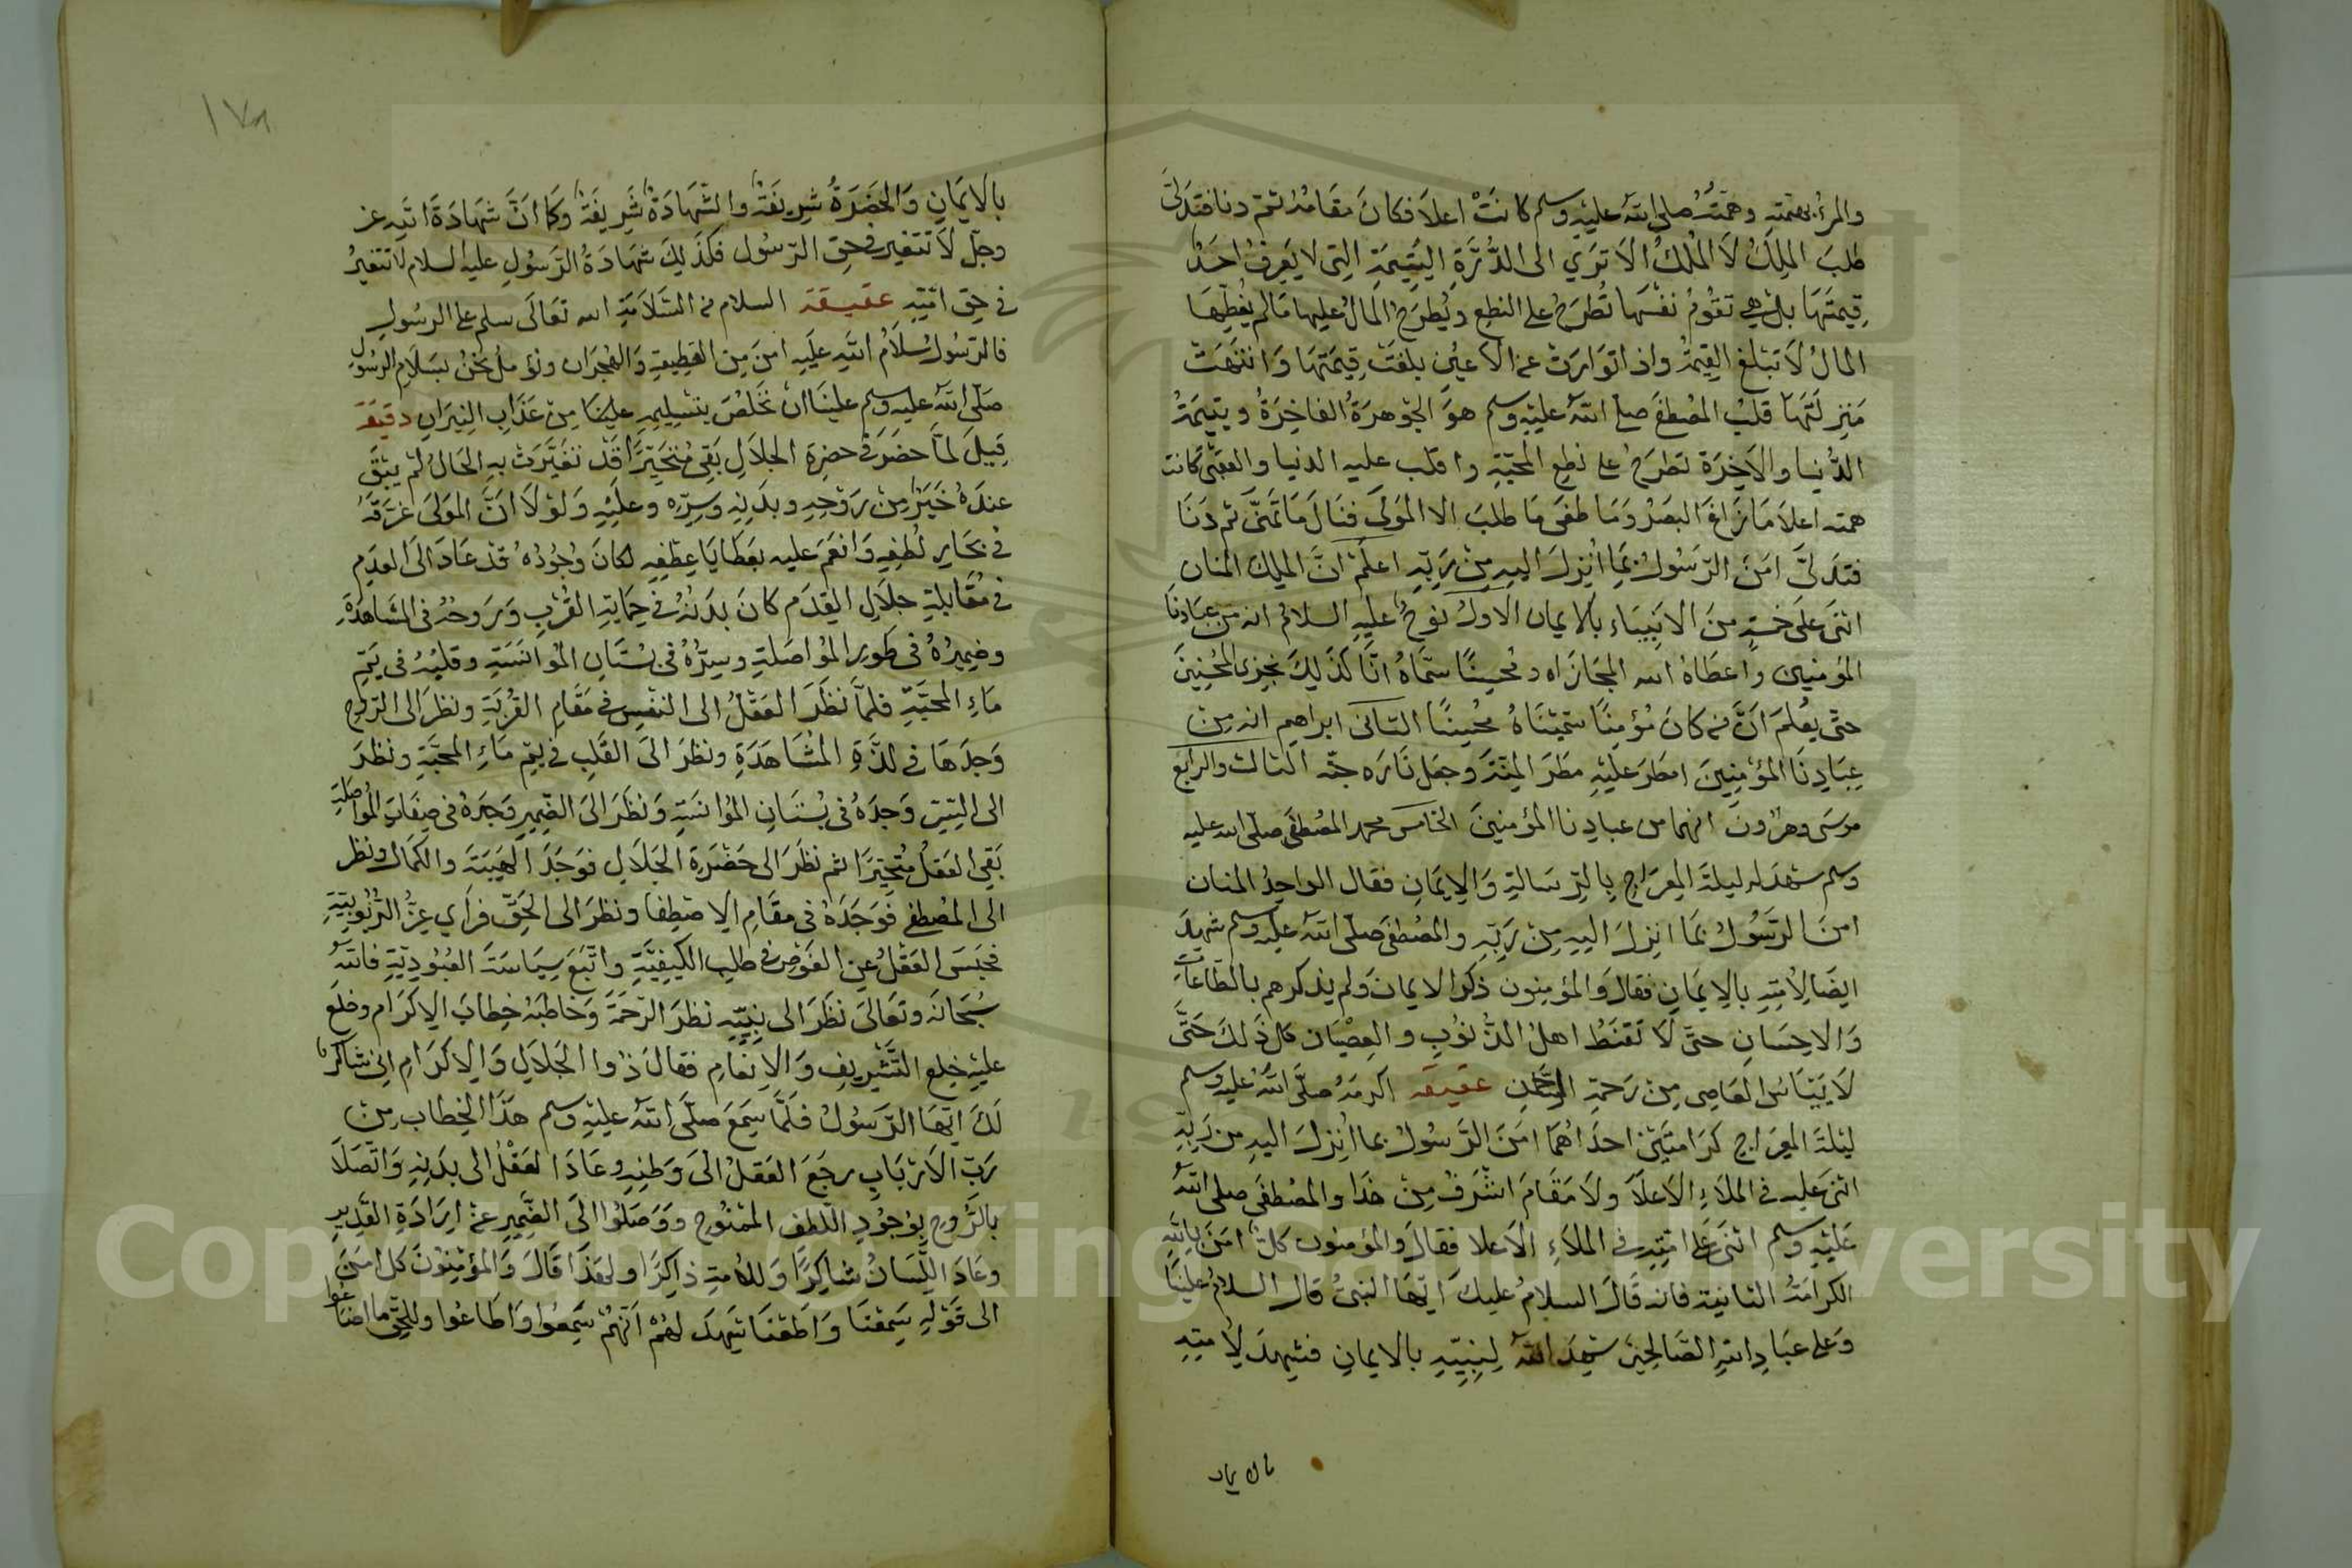 والمرء بهمته وهمَّتُه صلى الله عليه وسلم كانَتْ اعلاَ فكانَ مقَامُهُ ثم دنا فتدلىَّ
طلبَ الملِكَ لاَ المُلْكَ الاَ تَرَي الى الدُّرَّةِ اليَتِيمَةِ التِى لا يَعرِفُ احَدٌ
قِيمتَهَا بلْ هِي تقوِّمُ نفسَهَا تُطرَحُ على النطعِ ويُطرَحُ المالُ عليها فمالم يغُطِّهَا
المالُ لاَ تبْلغ القِيمَةُ واذا توَارَتْ عن الاعيُنِ بلغَتْ قِيمَتهَا وَانتَهَتْ
مَنزِلتَهَا قلبُ المصْطفَى صلى اللهُ عليْهِ وسلم هوَ الجوْهرَةُ الفاخِرَةُ ويتيمَةُ
الدُّنيا والآخِرَة تطرَحُ على نطعِ المحبَّةِ واقلب عليه الدنيا والعقبىَ كانت
همته اعلاَ مَا زَاغَ البصَرُ وَمَا طغىَ مَا طلبَ الا المَولىَ فنَالَ مَا تمَنىَّ ثم دَنَا
فتدَلىَّ امَنَ الرّسُولُ بمَا اُنزِلَ اليهِ مِنْ رَبّهِ اعلمْ انَّ الملِكَ المنانِ
اثنىَ علىَ خمْسةٍ منَ الانبِيَاء بالايمان الاولُ نوحٌ عليْهِ السلامُ انه من عبَادِنَا
المؤمنين واعطَاهُ الله المجَازاه ومحسِنًا سمَّاهُ انَّا كذَلِكَ نجزِى المحْسِنِينَ
حتىَّ يعُلمَ انَّ من كانَ مُؤمِنًا سَمَّيْنَاهُ محْسِنًا الثانى ابراهيم انه مِنْ
عِبَادِنَا المؤْمِنِينَ امطَرَ عليْهِ مطَرَ المِنَّةَ وجعَل نَارَه جنّه الثالث والرابَع
موسَى وهرُونَ انهما من عبادِنا المؤمنينَ الخامس محمد المصْطفَى صلّى الله عليه
وسلم شهدَ له ليلةَ المِعرَاجِ بِالرِّسَالةِ وَالاِيمَانِ فقال الواحِدُ المنان
امنَ الرَّسُولُ بمَا انزِلَ اليهِ مِنْ رَبّهِ والمصْطفَى صلّى اللهُ عليه وسلم شهِدَ
ايضًا لِاُمتِهِ بالِايمَانِ فقالَ وَالمؤمِنون ذكرَ الايمانَ ولم يذكرهم بالطّاعَاتِ
وَالاحِسَانِ حتىَّ لاَ تقنَطُ اهلُ الذُّنوُبِ والعِصْيَان كل ذَلكَ حَتىَّ
لاَ يَيْاَسُ العَاصِى مِن رَحمَةِ الرَّحمَنِ عقيقه اكرمَهُ صلَّى اللهُ عليْهِ وسلم
ليْلةَ المِعرَاج كرَامتيْنِ احدَاهُمَا امَنَ الرَّسُولُ بما اُنزِلَ اليهِ من رَبِهِّ
اثنى عليه في الملاَءِ الاَعلاَ ولاَ مَقَامَ اشْرَفُ مِنْ هَذَا والمصْطفىَ صلى اللهُ
عَليْهِ وسلم اثنىَ عَلَى امّتِهِ في الملاَءِ الاَعلا فقالَ والمؤمنون كلٌّ امَنَ بِاللهِ
الكرَامَةُ الثانيَة فانه قَالَ السلامُ عليكَ ايّهَا النبىُّ قال السلامُ عليْنَا
وَعلى عبَادِ اللهِ الصَّالحِينَ شهِدَ اللهُ لِنَبِيّهِ بالايمانِ فشهِدَ لِاُمتِهِ
بالايمان
١٧٨
بالاِيمَانِ وَالحَضَرَةُ شرِيفَةٌ والشّهَادَةُ شَرِيفَةٌ وكمَا انَّ شهَادَةَ اللهِ عز
وجلّ لاَ تتَغيرُ في حقِ الرّسُول فكذَلِكَ شهَادَةُ الرّسُولِ عليْه السلام لا تتغيرُ
في حِق امّتِهِ عقيقة السلام من السّلاَمَةِ الله تعَالىَ سلم على الرسُولِ
فالرّسُول بسلاَم اللهِ عليْهِ امنَ مِن القطِيعةِ وَالهجرَان ونؤملُ نحْنُ بسَلَامِ الرسُولِ
صلّى اللهُ عليه وسلم عليْنَا انْ نخَلصُ بتسْلِيمِهِ عليْنَا مِنْ عَذَابِ النِيرَانِ دقيقة
قِيلَ لمَّا حضَرَ في حضرَةِ الجلاَلِ بقِى مُتحَيّرًا قدْ تغيَّرَتْ بهِ الحَالُ لمْ يبْقَ
عندَهُ خَبَرٌ مِنْ رَوحِهِ وبدَنِهِ وسِرِّه وعليْهِ وَلوْلاَ انَّ المَوْلَى غرَّقَهُ
في بحَارِ لُطفِهِ وَانعَمَ عليه بعَطَايَا عطفِهِ لكانَ وجُودُهُ قدْ عَادَ الىَ العدَمِ
في مقَابلةِ جلاَلِ القِدَم كانَ بدَنُهُ في حِمَايةِ القُرْبِ وَرَوحُهُ في المشَاهدَةِ
وضِميرُهُ في طَورِ المُوَاصَلةِ وسِرُّهُ في بسْتَانِ المؤَانسَةِ وقلبُهُ في يَمِّ
مَاءِ المحبَّةِ فلمَّا نظَرَ العَقْلُ الى النفْسِ في مقَامِ القُرْبَةِ ونظرَ الى الرّوحِ
وَجدَهَا في لذَّةِ المُشَاهَدَةِ ونظرَ الىَ القَلبِ في يمِّ مَاءِ المحَبَّةِ ونظرَ
الى السِّرِّ وَجدَهُ في بُسْتَانِ المؤُانسَةِ وَنظرَ الىَ الضّميرِ وَجَدَهُ في صِفَاتِ المُواصلَةِ
بَقِىَ العَقلُ مُتحَيّرًا ثم نظَرَ الى حَضْرَةِ الجَلاَلِ فوَجَدَ الهَيْبَةَ والكمَالَ ونظر
الى المُصْطفى فوَجَدَهُ في مقَامِ الِاصْطِفا ونظرَ الى الحَقّ فرَأي عِزَّ الرّبُوبيَّةِ
فحبَسَ العَقْلُ عنِ الغَوْصِ في طلبِ الكيفِيَّةِ واتّبَعَ سِيَاسَةَ العُبُودِيّةِ فاللهُ
سُبْحَانَهُ وتعَالىَ نظَرَ الى نبِيّهِ نظرَ الرّحمَةَ وَخاطبَهُ خِطابَ الاِكرَام وخلعَ
عليْهِ خِلع التَّشرِيفِ وَالاِنعَامِ فقالَ ذُوا الجَلاَلِ وَالِاكرَامِ اِنى شاكرٌ
لكَ ايّهَا الرَّسُولُ فلَمَّا سَمِعَ صلَّى اللهُ عليْهِ وسلم هذَا الخِطاب مِنْ
رَبّ الاَرْبَابِ رجَعَ العَقلُ الىَ وَطنِهِ وعَادَ العَقْلُ الى بدَنِهِ وَاتّصَلاَ
بالرَّوحِ بوُجُودِ اللّطف الممْنُوح ووَصَلوُا الىَ الضّمِيرِ عنْ اِرَادَةِ القَدِيرِ
وعَادَ اللّسَانُ شاكِرًا وَللاُمةِ ذاكِرًا ولهذَا قَالَ وَالمؤمِنُونَ كل امَنَ
الى قَوْلهِ سَمِعْنَا وَاَطَعْنَا شهِدَ لهُمْ اَنّهُمْ سَمِعُوا وَاَطَاعُوا وللِحَقّ ما اضَاعُوا